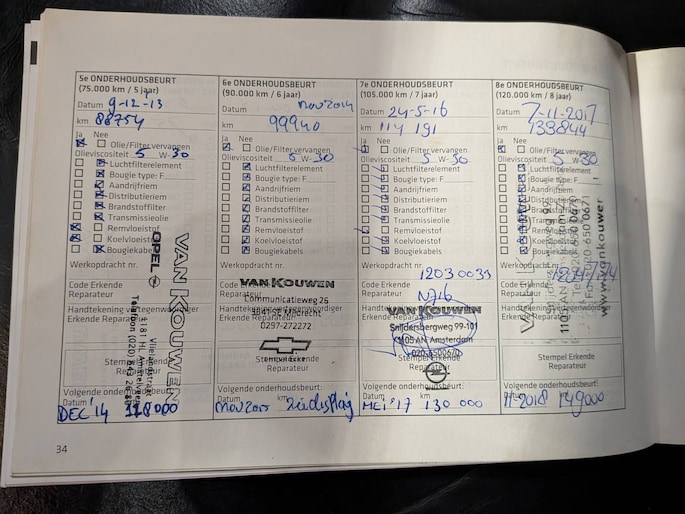 5e ONDERHOUDSBEURT
(75.000 km / 5 jaar)
Datum 9-12-13
km 88754
Ja Nee
Olie/Filter vervangen
Olieviscositeit 5 W-30
Luchtfilterelement
Bougie type: F
Aandrijfriem
Distributieriem
Brandstoffilter
Transmissieolie
Remvloeistof
Koelvloeistof
Bougiekabels
Werkopdracht nr.
Code Erkende
Reparateur
Handtekening vertegenwoordiger
Erkende Reparateur
OPEL
VAN KOUWEN
Stempel Erkende
Reparateur
Volgende onderhoudsbeurt:
Datum km
DEC '14 118000
6e ONDERHOUDSBEURT
(90.000 km / 6 jaar)
Datum nov 2014
km 99940
Ja Nee
Olie/Filter vervangen
Olieviscositeit 5 W-30
Luchtfilterelement
Bougie type: F
Aandrijfriem
Distributieriem
Brandstoffilter
Transmissieolie
Remvloeistof
Koelvloeistof
Bougiekabels
Werkopdracht nr.
VAN KOUWEN
Code Erkende
Reparateur
Communicatieweg 26
3641 SE Mijdrecht
0297-272272
Handtekening vertegenwoordiger
Erkende Reparateur
Stempel Erkende
Reparateur
Volgende onderhoudsbeurt:
Datum km
nov 2015
7e ONDERHOUDSBEURT
(105.000 km / 7 jaar)
Datum 24-5-16
km 114 191
Ja Nee
Olie/Filter vervangen
Olieviscositeit 5 W-30
Luchtfilterelement
Bougie type: F
Aandrijfriem
Distributieriem
Brandstoffilter
Transmissieolie
Remvloeistof
Koelvloeistof
Bougiekabels
Werkopdracht nr.
12030033
Code Erkende
Reparateur
N716
VAN KOUWEN
Handtekening vertegenwoordiger
Erkende Reparateur
Snijdersbergweg 99-101
1105 AN Amsterdam
Stempel Erkende
Reparateur
Volgende onderhoudsbeurt:
Datum km
MEI '17 130 000
8e ONDERHOUDSBEURT
(120.000 km / 8 jaar)
Datum 7-11-2017
km 133844
Ja Nee
Olie/Filter vervangen
Olieviscositeit 5 W-30
Luchtfilterelement
Bougie type: F
Aandrijfriem
Distributieriem
Brandstoffilter
Transmissieolie
Remvloeistof
Koelvloeistof
Bougiekabels
Werkopdracht nr.
Code Erkende
Reparateur
Handtekening vertegenwoordiger
Erkende Reparateur
Stempel Erkende
Reparateur
Volgende onderhoudsbeurt:
Datum km
11-2018 149000
34